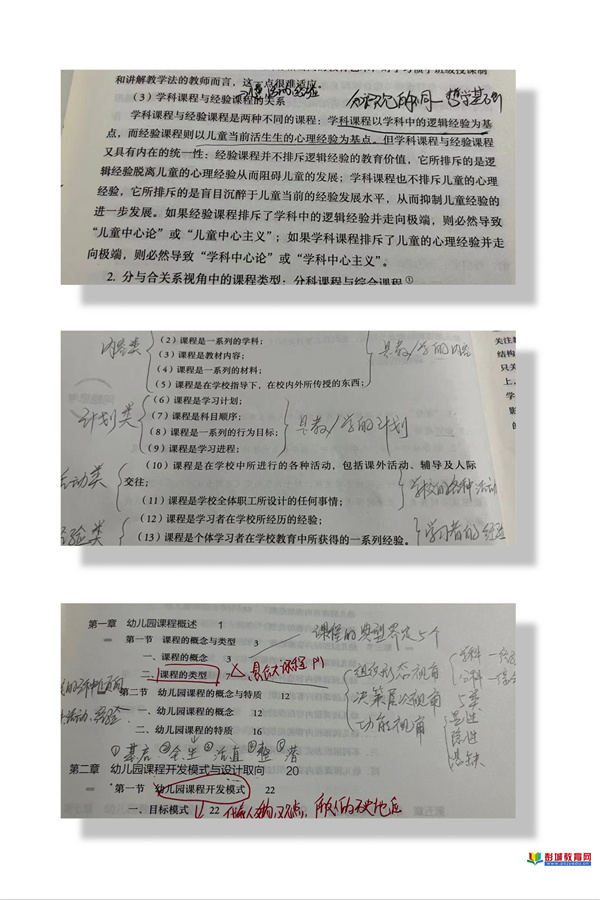 和讲解教学法的教师而言，这一点很难适应。
（3）学科课程与经验课程的关系
哲学基础
学科课程与经验课程是两种不同的课程：学科课程以学科中的逻辑经验为基
点，而经验课程则以儿童当前活生生的心理经验为基点。但学科课程与经验课程
又具有内在的统一性：经验课程并不排斥逻辑经验的教育价值，它所排斥的是逻
辑经验脱离儿童的心理经验从而阻碍儿童的发展；学科课程也不排斥儿童的心理
经验，它所排斥的是盲目沉醉于儿童当前的经验发展水平，从而抑制儿童经验的
进一步发展。如果经验课程排斥了学科中的逻辑经验并走向极端，则必然导致
“儿童中心论”或“儿童中心主义”；如果学科课程排斥了儿童的心理经验并走
向极端，则必然导致“学科中心论”或“学科中心主义”。
2. 分与合关系视角中的课程类型：分科课程与综合课程①
内容类
（2）课程是一系列的学科；
（3）课程是教材内容；
（4）课程是一系列的材料；
（5）课程是在学校指导下，在校内外所传授的东西；
是教/学的内容
计划类
（6）课程是学习计划；
（7）课程是科目顺序；
（8）课程是一系列的行为目标；
（9）课程是学习进程；
是教/学的计划
活动类
（10）课程是在学校中所进行的各种活动，包括课外活动、辅导及人际
交往；
（11）课程是学校全体职工所设计的任何事情；
学校的各种活动
经验类
（12）课程是学习者在学校所经历的经验；
（13）课程是个体学习者在学校教育中所获得的一系列经验。
学习者的经验
关注
结构
只关
上，
学
影
的
第一章 幼儿园课程概述 1
第一节 课程的概念与类型 3
一、课程的概念 3
二、课程的类型
第二节 幼儿园课程的概念与特质 12
一、幼儿园课程的概念 12
二、幼儿园课程的特质 16
课程的典型界定5个
组织形态视角
决策层次视角
功能视角
5类
显性
隐性
悬缺
第二章 幼儿园课程开发模式与设计取向 20
第一节 幼儿园课程开发模式 22
一、目标模式 22
彭城教育网